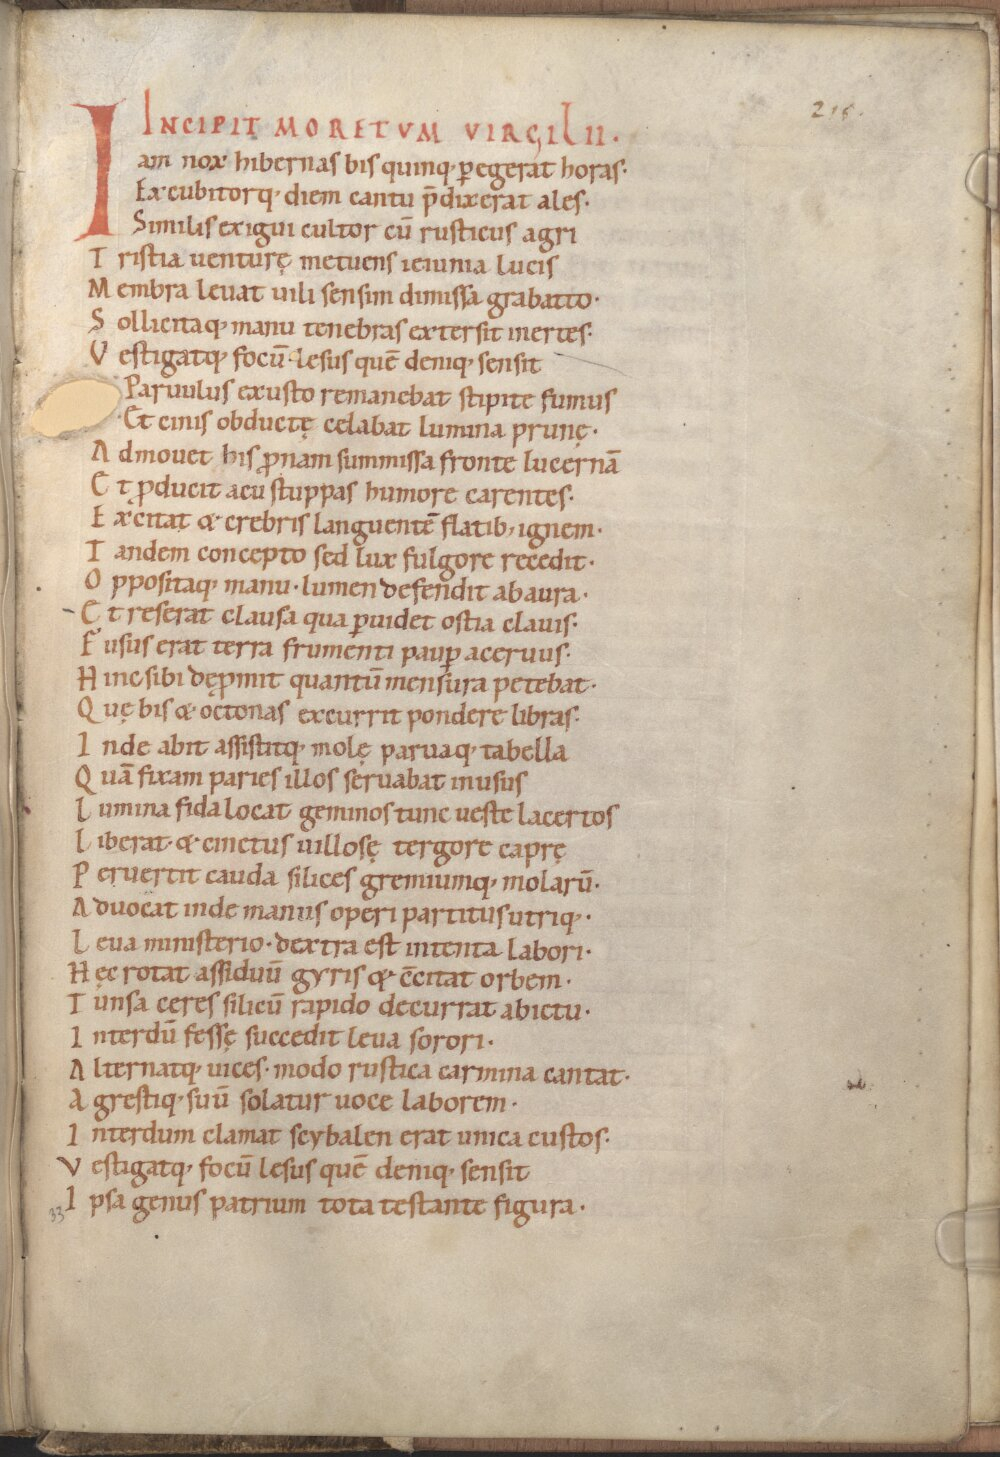 215.
INCIPIT MORETVM VIRGILII.
Iam nox hibernas bis quinq; p̱egerat horas.
Excubitorq; diem cantu p̄dixerat ales.
Similis exigui cultor cū rusticus agri
Tristia venturę metuens ieiunia lucis
Membra levat uili sensim dimissa grabatto.
Sollicitaq; manu tenebras extersit inertes.
Vestigatq; focū. lesus quē deniq; sensit
Paruulus exusto remanebat stipite fumus
Et cinis obductę celabat lumina prunę.
Admouet his ꝓnam summissa fronte lucernā
Et ꝓducit acu stuppas humore carentes.
Excitat & crebris languentē flatib; ignem.
Tandem concepto sed lux fulgore recedit.
Oppositaq; manu. lumen defendit ab aura.
Et reserat clausa qua ꝑuidet ostia clauis.
Fusus erat terra frumenti paupꝑ aceruus.
Hinc sibi dęꝓmit quantū mensura petebat.
Quę bis & octonas excurrit pondere libras.
Inde abit assistitq; molę paruaq; tabella
Quā fixam paries illos seruabat in usus
Lumina fida locat geminos tunc ueste lacertos
Liberat. & cinctus uillosę tergore caprę
Peruertit cauda silices gremiumq; molarū.
Aduocat inde manus operi partitus utriq;.
Leua ministerio. dextra est intenta labori.
Hęc rotat assiduū gyris & c̄citat orbem.
Tunsa ceres silicū rapido decurrat ab ictu.
Interdū fessę succedit leua sorori.
Alternatq; uices. modo rustica carmina cantat.
Agrestiq; suū solatur uoce laborem.
Interdum clamat scybalen erat unica custos.
Vestigatq; focū lesus quē deniq; sensit
Ipsa genus patrium tota testante figura.
33